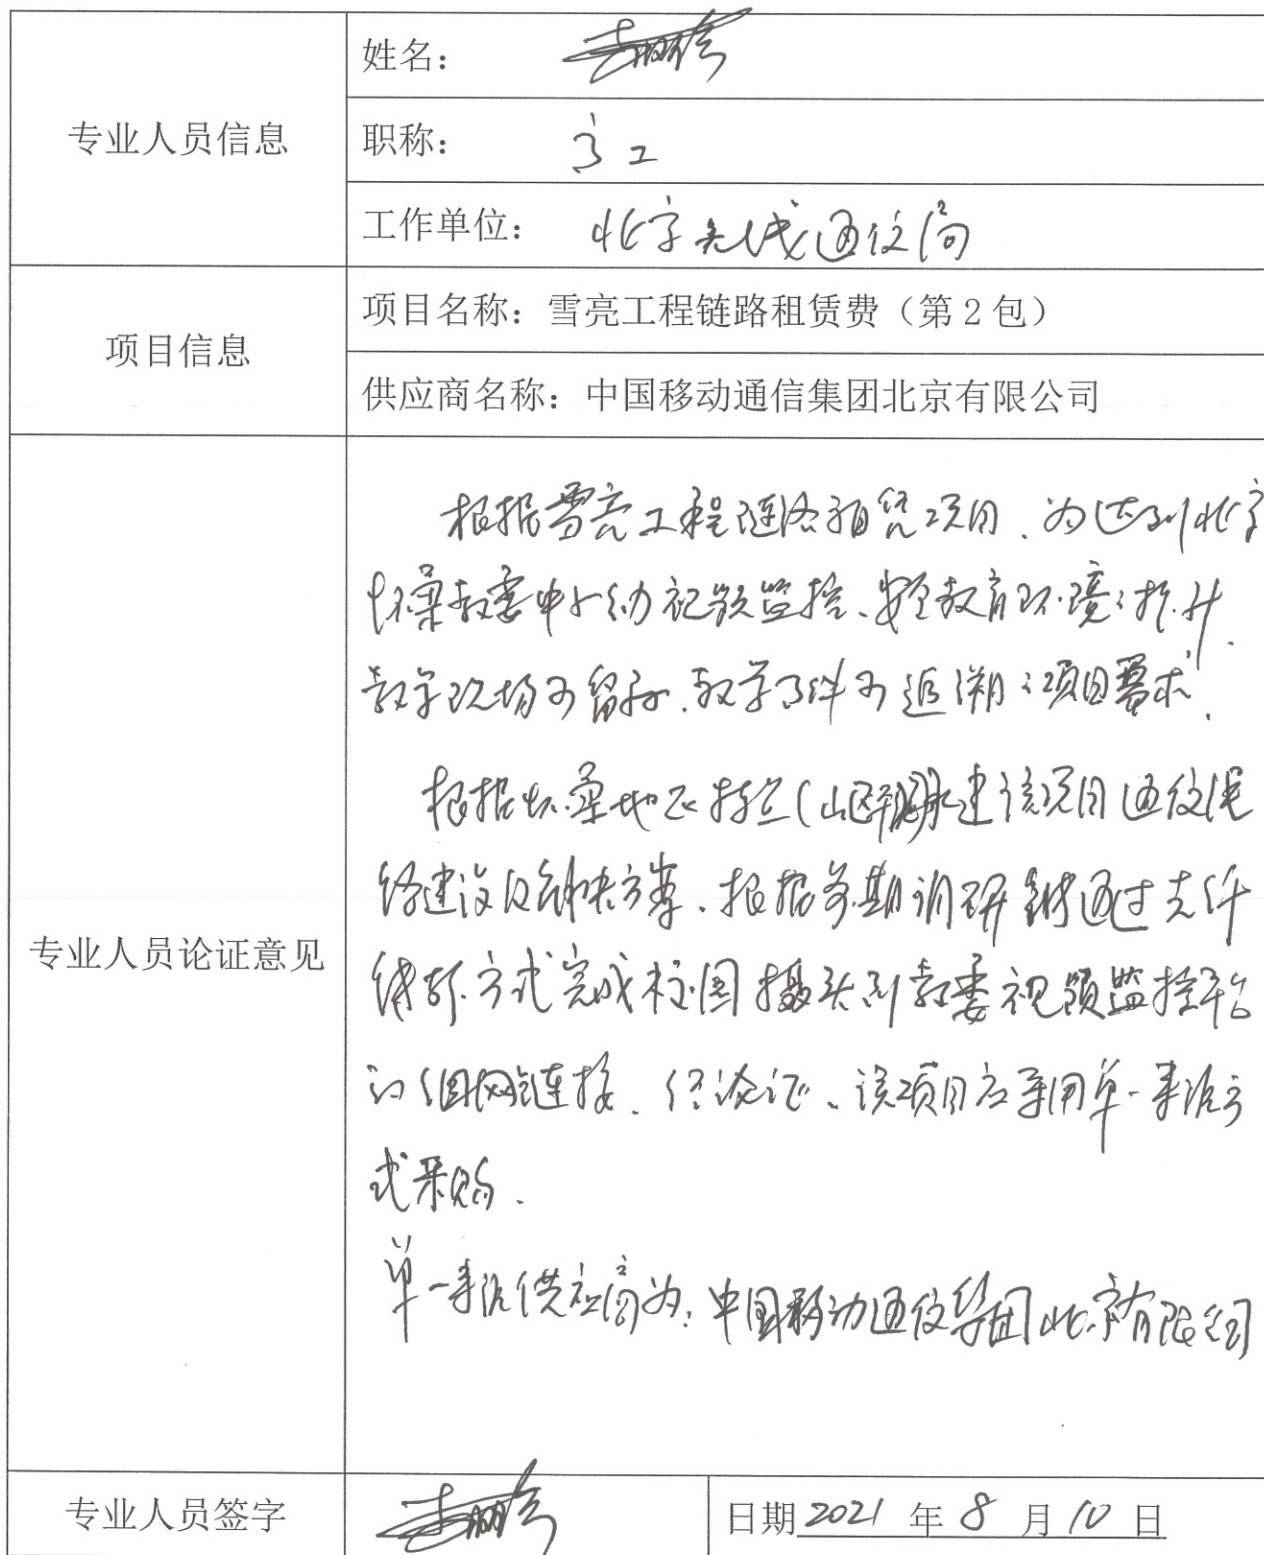 专业人员信息
姓名：
职称：高工
工作单位：北京无线通信局
项目信息
项目名称：雪亮工程链路租赁费（第2包）
供应商名称：中国移动通信集团北京有限公司
专业人员论证意见
根据雪亮工程链路租赁项目、为达到北京
怀柔教委中小幼视频监控、安全教育环境提升、
教学现场可留存、教学事件可追溯之项目要求、
根据怀柔地区特点(山区 建该项目通信线
路建设及解决方案、根据前期调研 通过光纤
传输方式完成校园摄头到教委视频监控平台
的组网链接、经论证、该项目应采用单一来源方
式采购.
单一来源供应商为:中国移动通信集团北京有限公司
专业人员签字
日期2021年8月10日